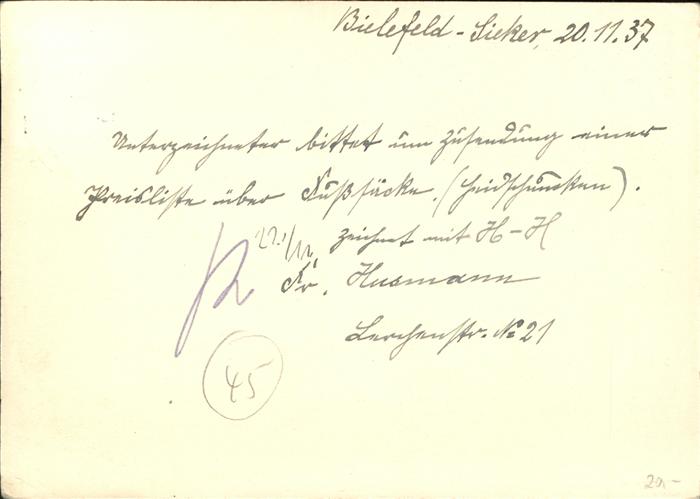 Bielefeld-Sieker, 20.11.37
Unterzeichneter bittet um Zusendung einer
Preisliste über Fußsäcke. (Heidschnucken).
22./11
zeichnet mit H-H
Fr. Husmann
Lerchenstr. No 21
45
20,-